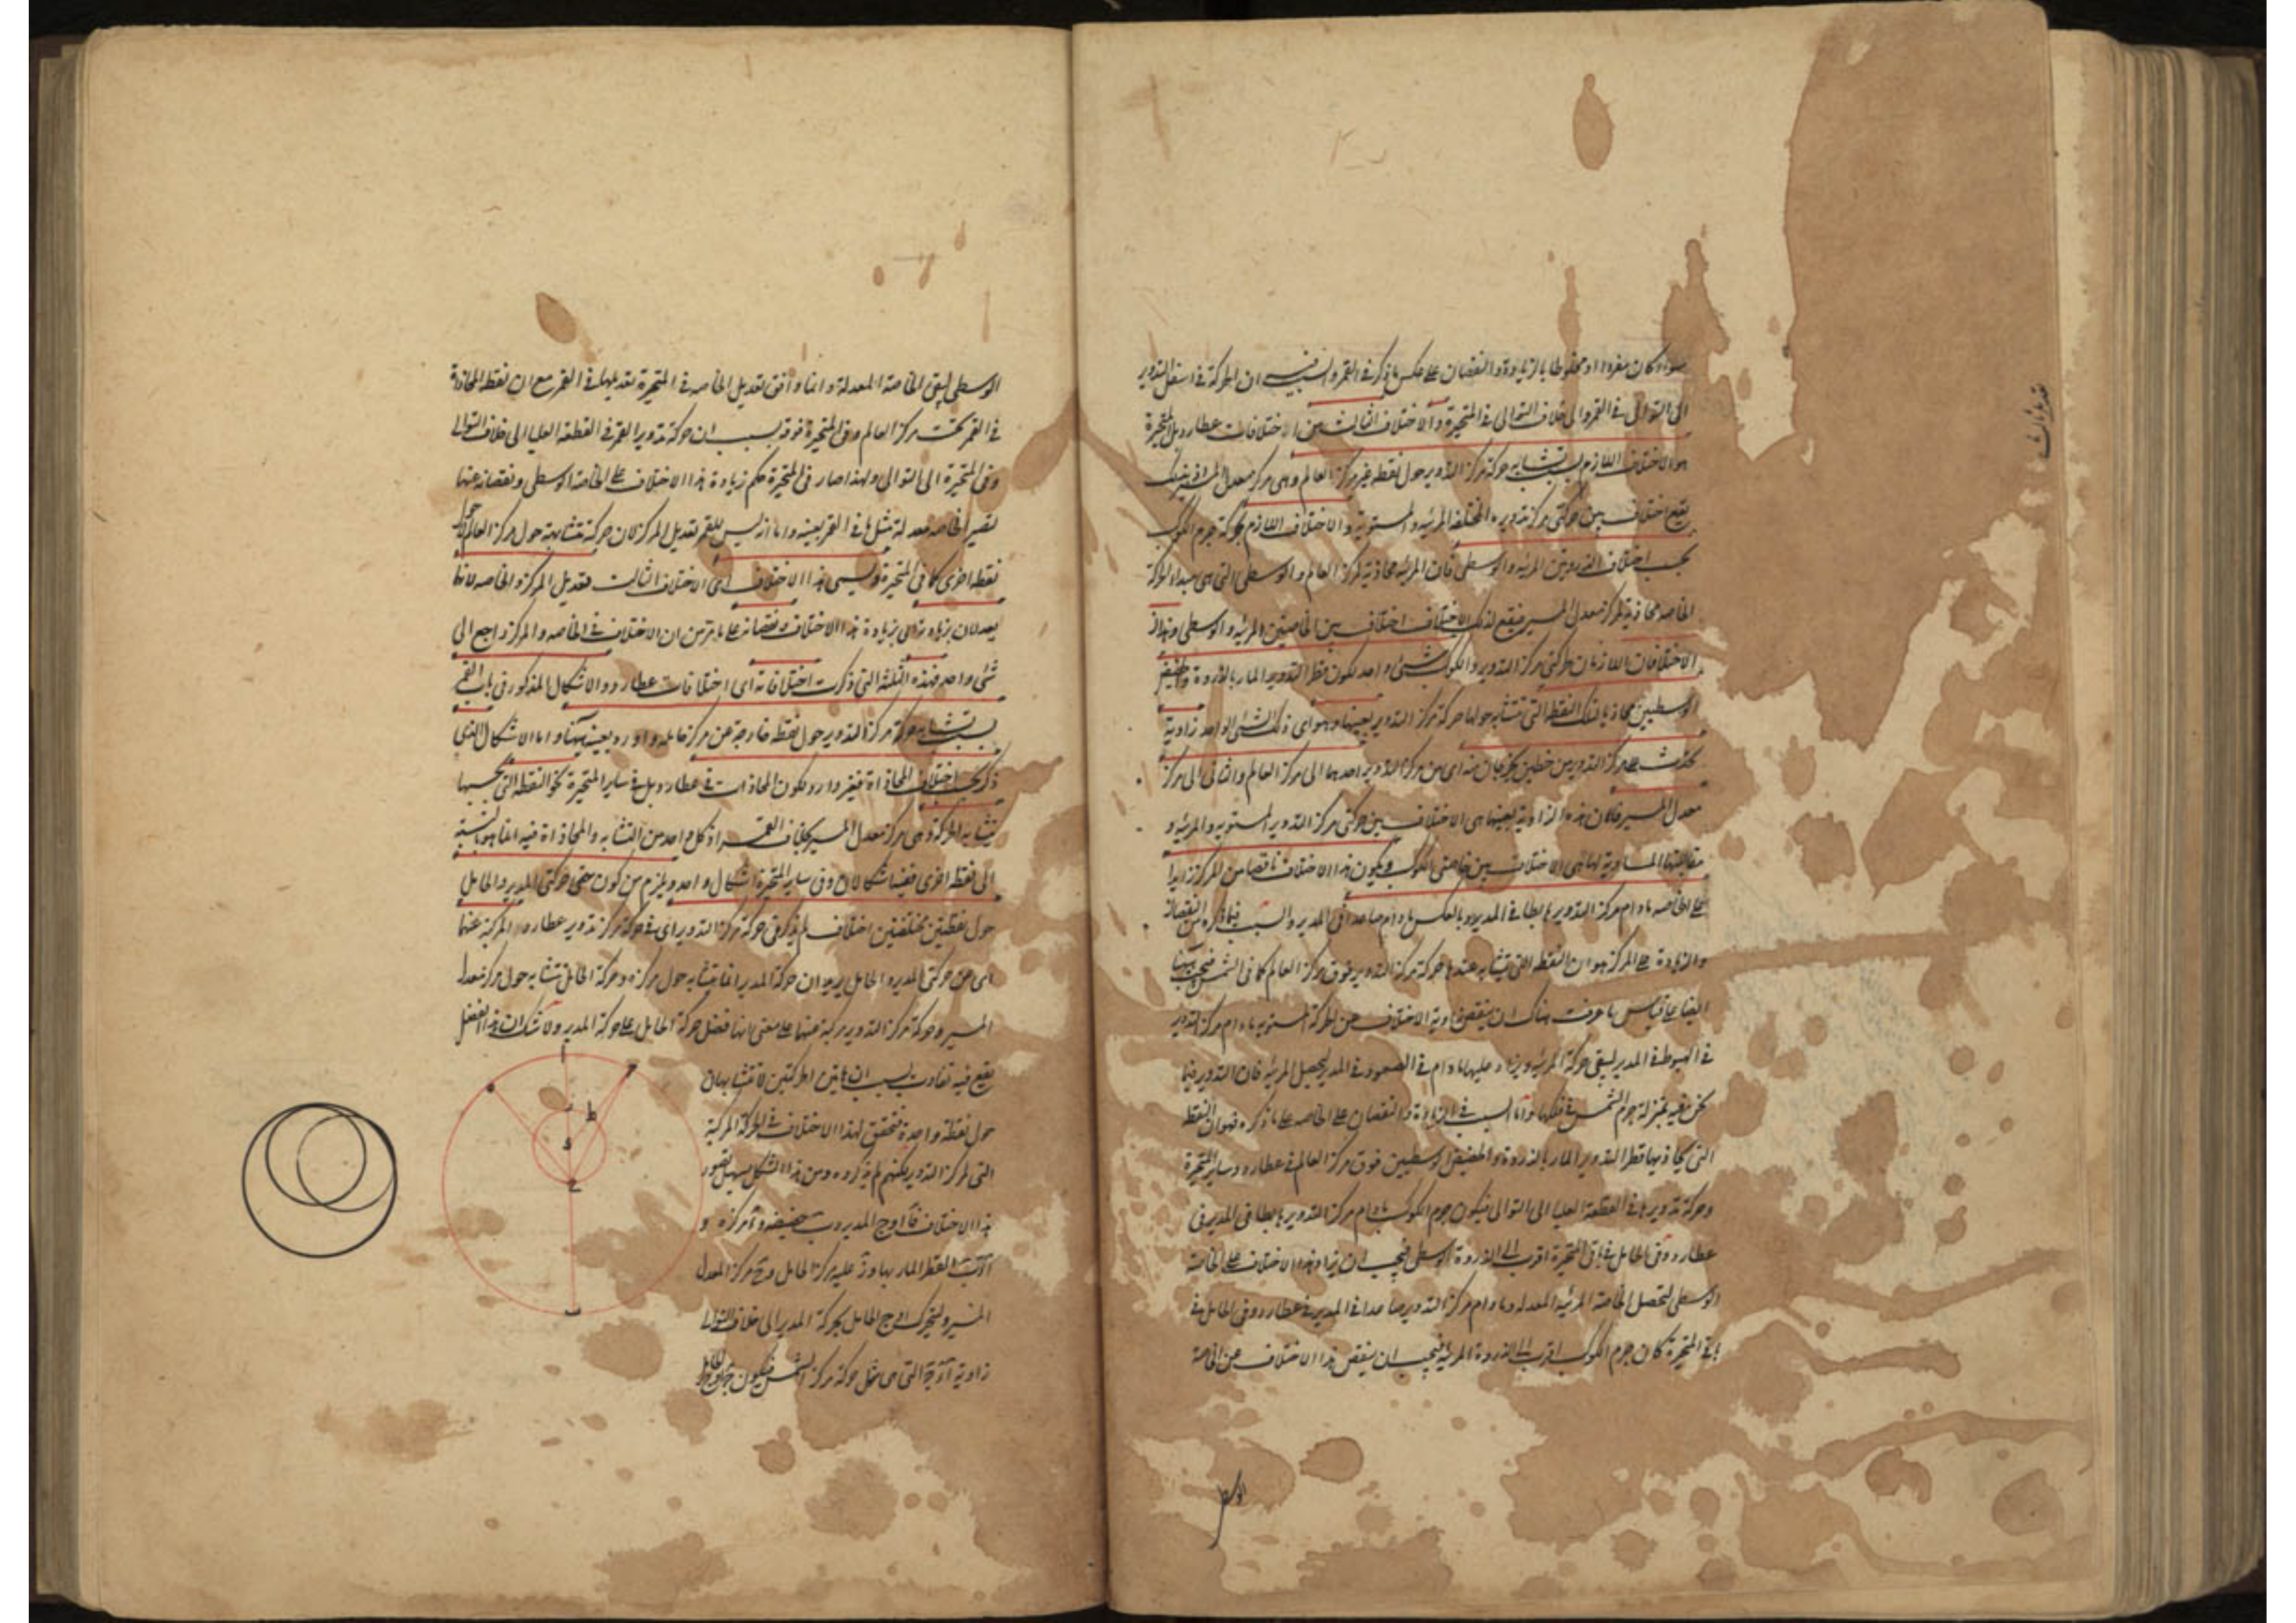 سواء كان مفردا او مخلوطا بالزيادة والنقصان على عكس ما ذكر فى القمر والسبب فيه ان الحركة فى اسفل التدوير
الى التوالى فى القمر والى خلاف التوالى فى المتحيرة والاختلاف الثالث من اختلافات عطارد بل المتحيرة
هو الاختلاف اللازم بسبب تشابه حركة مركز التدوير حول نقطة غير مركز العالم وهى مركز معدل المسير
يقع اختلاف بين حركتى مركز تدويره المختلفة المرئية والمستوية والاختلاف اللازم لحركة جرم الكوكب
بحسب اختلاف الذروتين المرئية والوسطى فان المرئية محاذية لمركز العالم والوسطى التى هى مبداء الحركة
الخاصة محاذية لمركز معدل المسير فيقع لذلك الاختلاف اختلاف بين الخاصتين المرئية والوسطى وهذان
الاختلافان اللازمان لحركتى مركز التدوير والكوكب شىء واحد لكون قطر التدوير المار بالذروة والحضيض
الوسطيين محاذيا لتلك النقطة التى تتشابه حولها حركة مركز التدوير بعينها وهو اى ذلك الشىء الواحد زاوية
تحدث على مركز التدوير من خطين يخرجان منه اى من مركز التدوير احدهما الى مركز العالم والثانى الى مركز
معدل المسير فان هذه الزاوية بعينها هى الاختلاف بين حركتى مركز التدوير المستوية والمرئية و
مقابلتها المساوية لها هى الاختلاف بين خاصتى الكوكب ويكون هذا الاختلاف ناقصا من المركز زايدا
على الخاصة ما دام مركز التدوير هابطا فى المدير وبالعكس ما دام صاعدا فى المدير والسبب فيما ذكره من النقصان
والزيادة على المركز هو ان النقطة التى يتشابه عندها حركة مركز التدوير فوق مركز العالم كما فى الشمس فيجب هنا
ايضا على قياس ما عرفت هناك ان ينقص زاوية الاختلاف من الحركة المستوية ما دام مركز التدوير
فى الهبوط فى المدير ليبقى حركة المرئية ويزاد عليها ما دام فى الصعود فى المدير ليحصل المرئية فان التدوير فيما
نحن فيه بمنزلة جرم الشمس فى فلكها واما السبب فى الزيادة والنقصان على الخاصة على ما ذكره فهو ان النقطة
التى يحاذيها قطر التدوير المار بالذروة والحضيض الوسطيين فوق مركز العالم فى عطارد وساير المتحيرة
وحركة تدويرها فى القطعة العليا الى التوالى فيكون جرم الكوكب ما دام مركز التدوير هابطا فى المدير فى
عطارد وفى الحامل فى باقى المتحيرة اقرب الى الذروة الوسطى فيجب ان يزاد هذا الاختلاف على الخاصة
الوسطى لتحصل الخاصة المرئية المعدلة وما دام مركز التدوير صاعدا فى المدير فى عطارد وفى الحامل فى
باقى المتحيرة كان جرم الكوكب اقرب الى الذروة المرئية فيجب ان ينقص هذا الاختلاف عن الخاصة
الوسطى
الوسطى ليبقى الخاصة المعدلة وانما وافق تعديل الخاصة فى المتحيرة تعديلها فى القمر مع ان نقطة المحاذاة
فى القمر تحت مركز العالم وفى المتحيرة فوقه بسبب ان حركة تدوير القمر فى القطعة العليا الى خلاف التوالى
وفى المتحيرة الى التوالى ولهذا صار فى المتحيرة حكم زيادة هذا الاختلاف على الخاصة الوسطى ونقصانه عنها
لتصير الخاصة معدلة مثل ما فى القمر بعينه واما انه ليس للقمر تعديل المركز لان حركته متشابهة حول مركز العالم لا حول
نقطة اخرى كما فى المتحيرة ويسمى هذا الاختلاف اى الاختلاف الثالث بتعديل المركز والخاصة لانهما
يعدلان بزيادته اى بزيادة هذا الاختلاف ونقصانه على ما مر من ان الاختلاف فى الخاصة والمركز راجع الى
شىء واحد فهذه الثلثة التى ذكرت اختلافاته اى اختلافات عطارد والاشكال المذكور فى باب القمر
بسبب تشابه حركة مركز التدوير حول نقطة خارجة عن مركز حامله وارد بعينه ههنا واما الاشكال الذى
ذكر بحسب اختلاف المحاذاة فغير وارد لكون المحاذات فى عطارد بل فى ساير المتحيرة نحو النقطة التى بحسبها
تشابه الحركة وهى مركز معدل المسير بخلاف القمر اذ كل واحد من التشابه والمحاذاة فيه انما هو بالنسبة
الى نقطة اخرى ففيه اشكالان وفى ساير المتحيرة اشكال واحد ويلزم من كون حركتى المدير والحامل
حول نقطتين مختلفتين اختلاف لم يذكر فى حركة مركز التدوير اى فى حركة مركز تدوير عطارد المركبة عنهما
اى عن حركتى المدير والحامل يريد ان حركة المدير انما يتشابه حول مركزه وحركة الحامل تتشابه حول مركز معدل
المسير وحركة مركز التدوير مركبة عنهما على معنى انها فضل حركة الحامل على حركة المدير ولا شك ان هذا الفضل
يقع فيه تفاوت بسبب ان هاتين الحركتين لا تتشابهان
حول نقطة واحدة فتحقق لهذا الاختلاف فى الحركة المركبة
التى لمركز التدوير لكنهم لم يذكروه ومن هذا الشكل يسهل تصور
هذا الاختلاف فآ اوج المدير وب حضيضه وه مركزه و
آ ب القطر المار بها وز عليه مركز الحامل وح مركز المعدل
المسير وليتحرك اوج الحامل بحركة المدير الى خلاف التوالى
زاوية التى هى مثل حركة مركز الشمس فيكون
ا
ح
ه
ط
ز
ح
ب